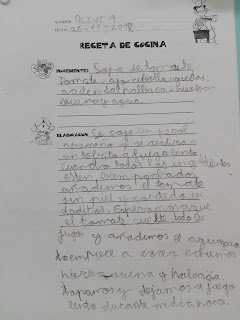 NOMBRE
FECHA 25-11-
RECETA DE COCINA
INGREDIENTES: Sopa de tomate
Tomate, ajo, cebolla,
aceite, sal,
buena y agua.
ELABORACIÓN: Se coge un perol
y se
un sofrito a fuego lento
cuando todos los ingredientes
esten bien pochados
añadimos el tomate
sin piel y cortado en
daditos. Esperamos que
el tomate suelte todo el
jugo y añadimos el agua
empiece a cocer echamos
hierba buena y
tapamos y dejamos a fuego
lento durante media hora.